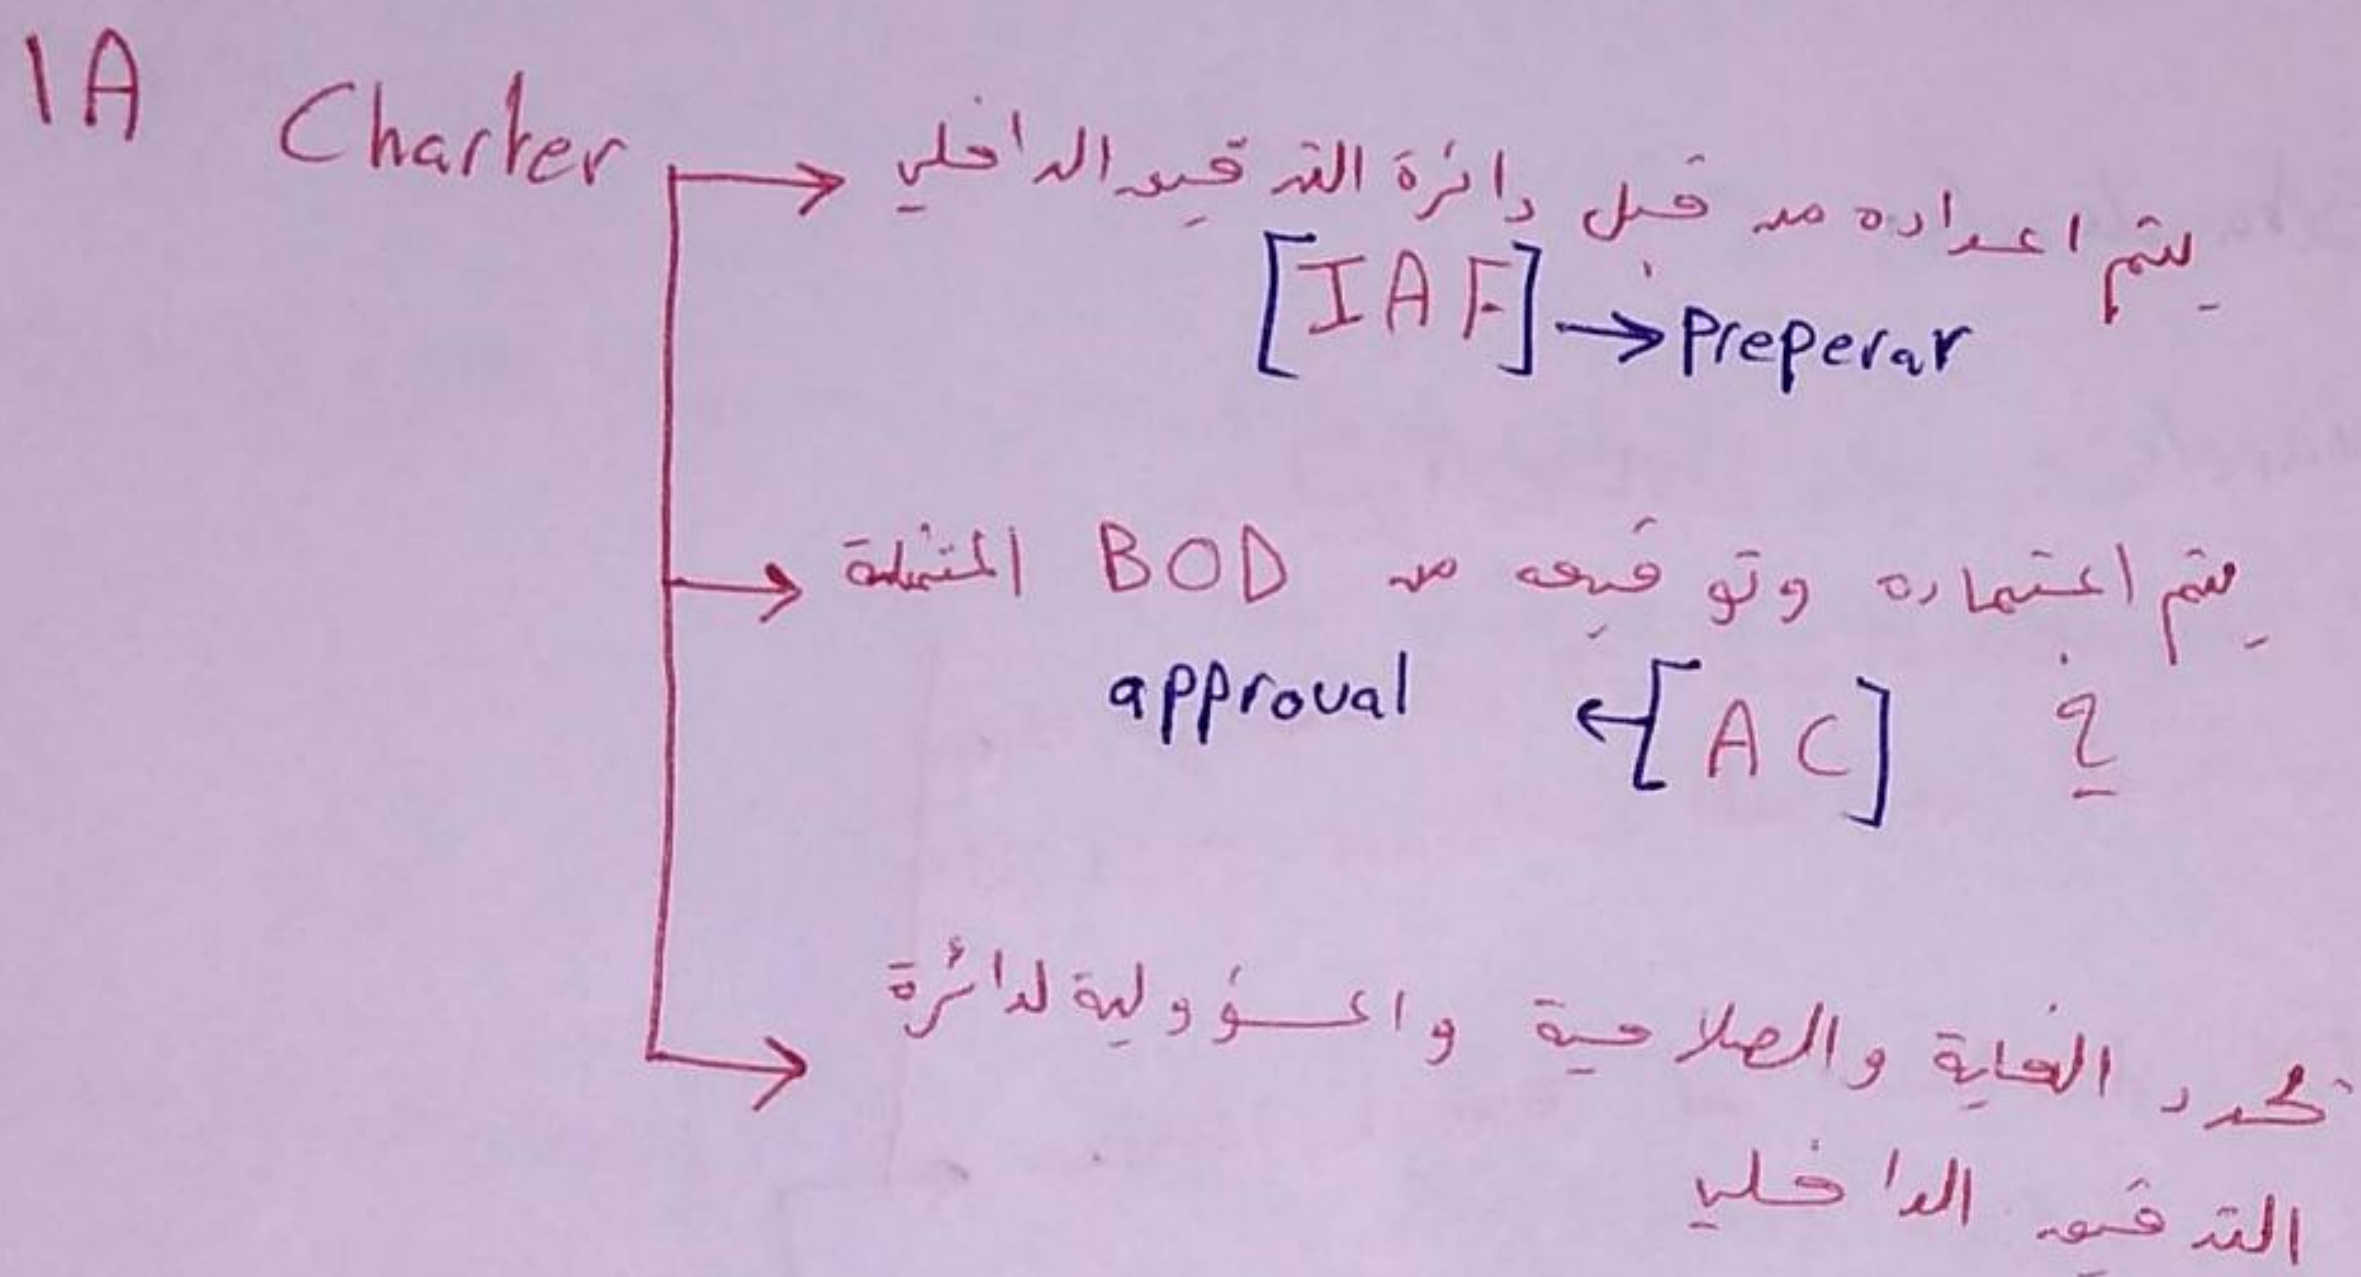 IA Charter
يتم اعداده من قبل دائرة التدقيق الداخلي
[IAF] → Preperar
يتم اعتماده وتوقيعه من BOD المتمثلة
بـ [AC] → approval
تحدد الغاية والصلاحية والمسؤولية لدائرة
التدقيق الداخلي